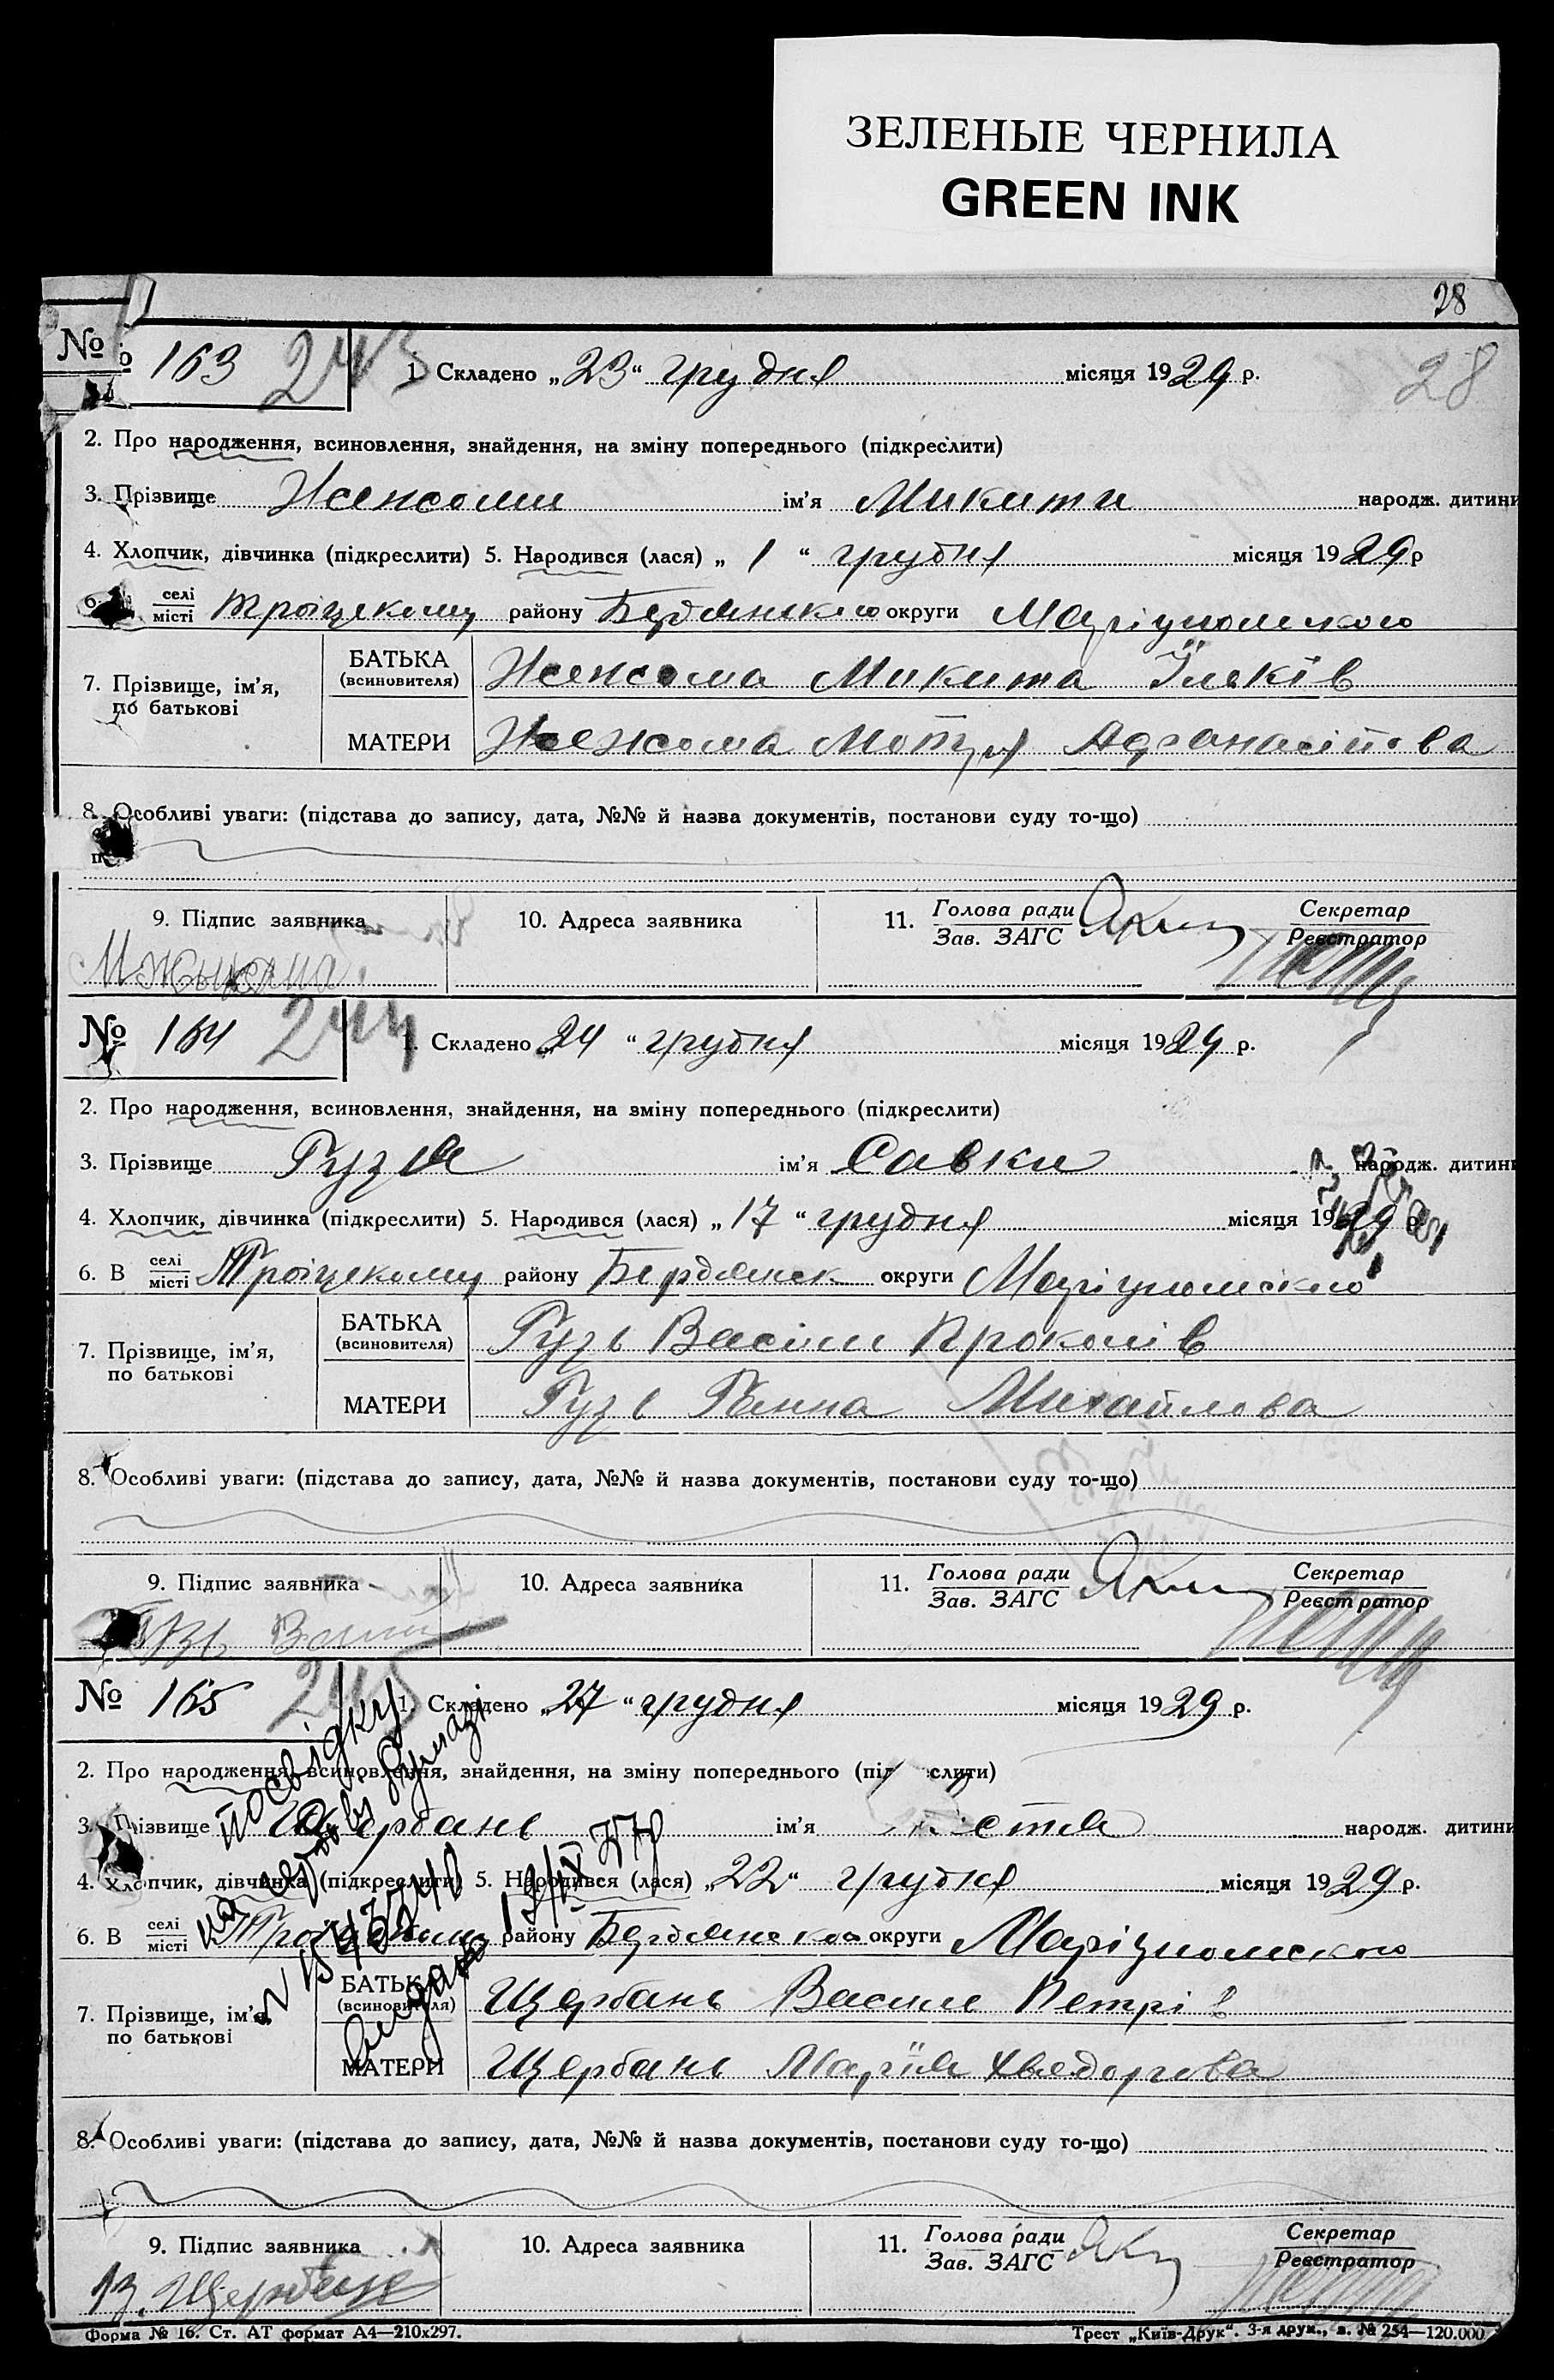 ЗЕЛЕНЫЕ ЧЕРНИЛА
GREEN INK
28
№ 163 243 1. Складено „23“ грудня місяця 1929 р. 28
2. Про народження, всиновлення, знайдення, на зміну попереднього (підкреслити)
3. Прізвище ім’я Микити народж. дитини
4. Хлопчик, дівчинка (підкреслити) 5. Народився (лася) „1“ грудня місяця 1929 р
6. селі місті Троіцькому району Бердянського округи Маріупольського
7. Прізвище, ім’я, по батькові
БАТЬКА (всиновителя) Микита Ількїв
МАТЕРИ Мотря
8. Особливі уваги: (підстава до запису, дата, №№ й назва документів, постанови суду то-що)
9. Підпис заявника 10. Адреса заявника 11. Голова ради Зав. ЗАГС Секретар Реєстратор
№ 164 244 1. Складено „24“ грудня місяця 1929 р.
2. Про народження, всиновлення, знайдення, на зміну попереднього (підкреслити)
3. Прізвище Гузя ім’я Савки народж. дитини
4. Хлопчик, дівчинка (підкреслити) 5. Народився (лася) „17“ грудня місяця 1929 р
6. В селі місті Троіцькому району Бердянськ округи Маріупольського
7. Прізвище, ім’я, по батькові
БАТЬКА (всиновителя) Гузь Васіль
МАТЕРИ Гузь Ганна Михайлова
8. Особливі уваги: (підстава до запису, дата, №№ й назва документів, постанови суду то-що)
9. Підпис заявника 10. Адреса заявника 11. Голова ради Зав. ЗАГС Секретар Реєстратор
Гузь
№ 165 245 1. Складено „27“ грудня місяця 1929 р.
2. Про народження, всиновлення, знайдення, на зміну попереднього (підкреслити)
3. Прізвище Щербань ім’я народж. дитини
4. Хлопчик, дівчинка (підкреслити) 5. Народився (лася) „22“ грудня місяця 1929 р.
6. В селі місті Троіцькому району Бердянського округи Маріупольського
7. Прізвище, ім’я, по батькові
БАТЬКА (всиновителя) Щербань Василь Петрів
МАТЕРИ Щербань Маріїя Хведорова
посвідку
видано
8. Особливі уваги: (підстава до запису, дата, №№ й назва документів, постанови суду то-що)
9. Підпис заявника 10. Адреса заявника 11. Голова ради Зав. ЗАГС Секретар Реєстратор
В. Щербань
Форма № 16. Ст. АТ формат А4—210х297. Трест „Київ-Друк“. 3-я друк., з. № 254—120.000